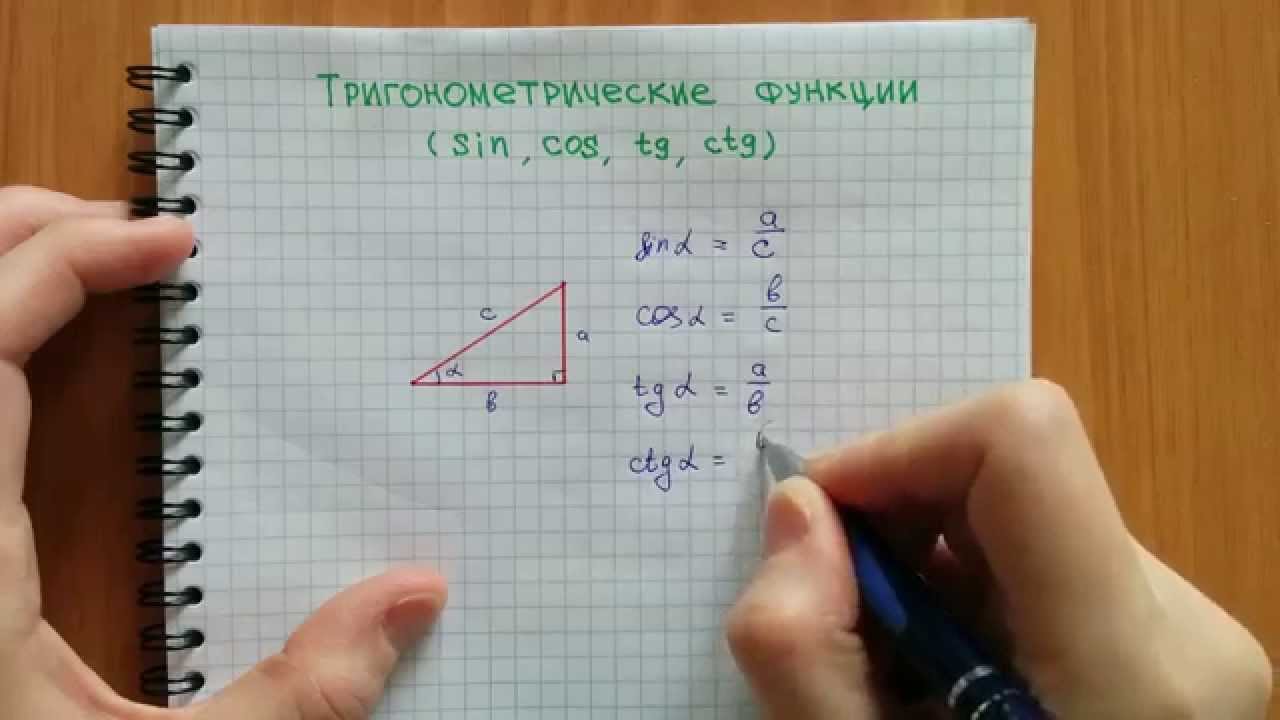 Тригонометрические функции
(sin, cos, tg, ctg)
sinα = a/c
cosα = в/c
tgα = a/в
ctgα =
c
a
α
в